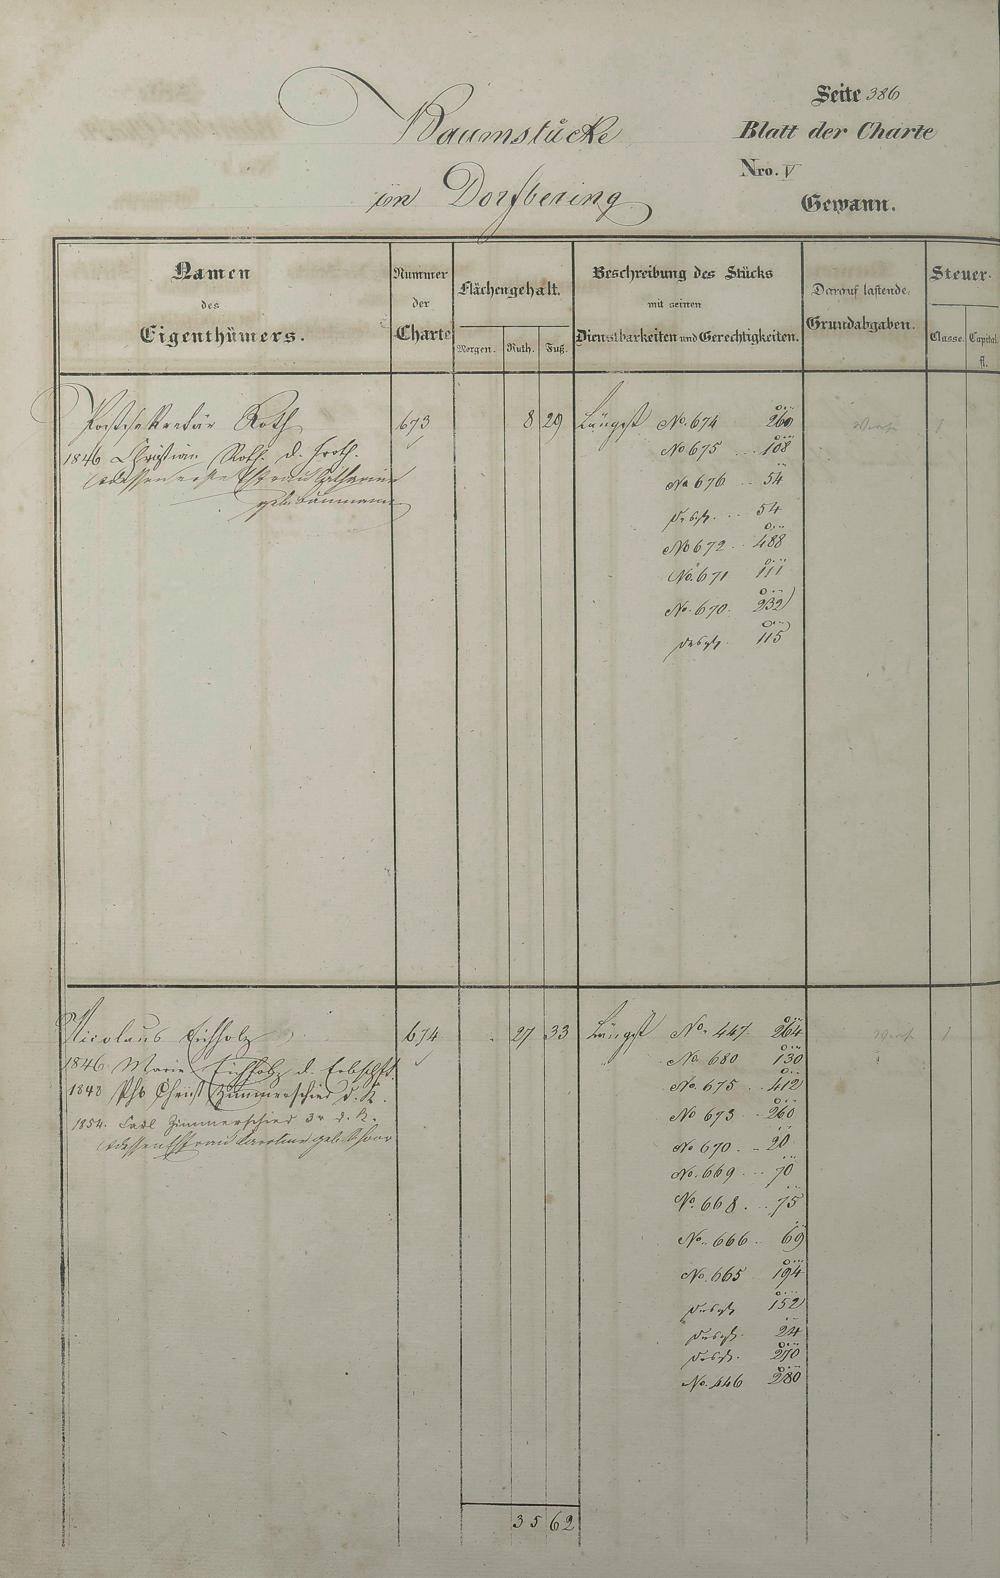 Seite 386
Baumstücke
Blatt der Charte
Nro. V
im Dorfbering
Gewann.
Namen
des
Eigenthümers.
Nummer
der
Charte
Flächengehalt.
Morgen. Ruth. Fuß.
Beschreibung des Stücks
mit seinen
Dienstbarkeiten und Gerechtigkeiten.
Darauf lastende
Grundabgaben.
Steuer-
Classe. Capital
fl.
Roth 673 8 29 Längst No. 674 260
1846 Christian Roth d.
No 675 108
dessen Ehefrau Catharine
No 676 54
geb. Baumann
desgl. 54
No 672 488
No. 671 111
No. 670 232
desgl. 115
Nicolaus Eichholz 674 27 33 Längst No. 447 264
1846 Marie Eichholz d. Erbschft.
No 680 130
1848 Phs Christ Zimmerschied d. K.
No. 675 412
1854. Carl Zimmerschied 3r d. K.
No 673 260
dessen Ehefrau Caroline geb.
No 670 20
No. 669 70
No. 668 75
No. 666 69
No. 665 194
desgl. 152
desgl. 24
desgl. 270
No. 446 280
35 62